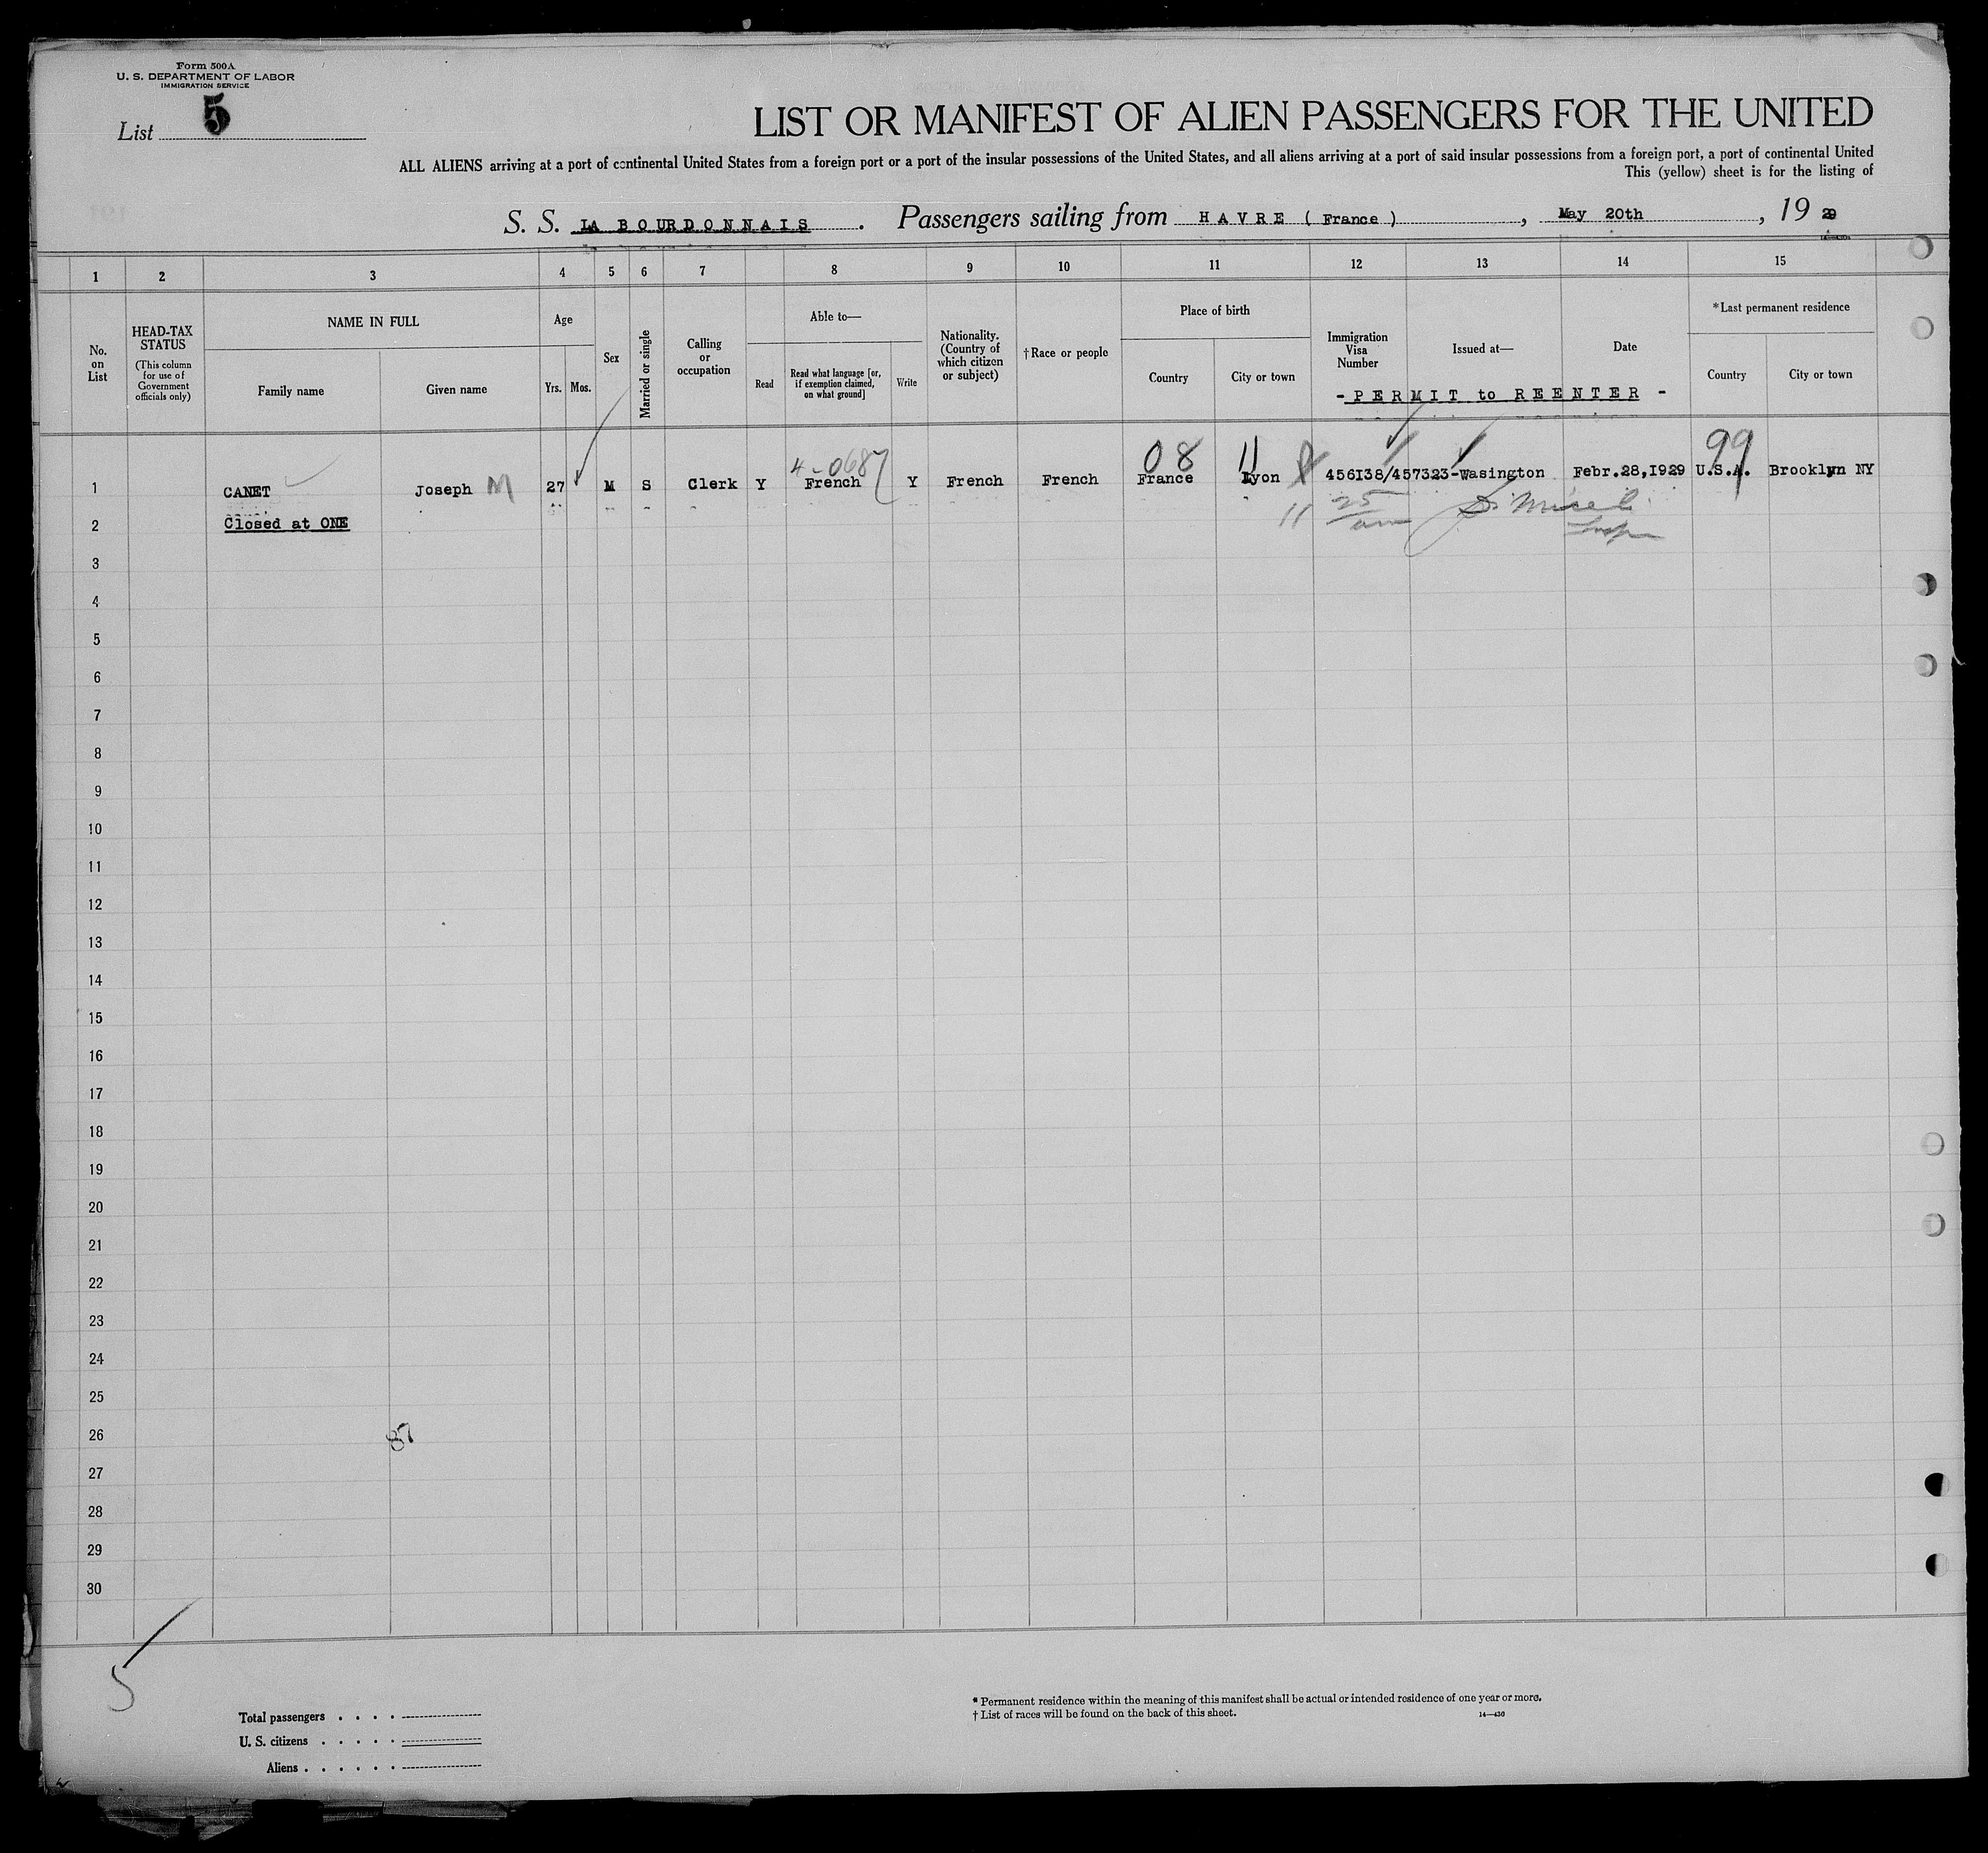 Form 500A
U. S. DEPARTMENT OF LABOR
IMMIGRATION SERVICE
List 5
LIST OR MANIFEST OF ALIEN PASSENGERS FOR THE UNITED
ALL ALIENS arriving at a port of continental United States from a foreign port or a port of the insular possessions of the United States, and all aliens arriving at a port of said insular possessions from a foreign port, a port of continental United
This (yellow) sheet is for the listing of
S. S. LA BOURDONNAIS. Passengers sailing from HAVRE ( France ), May 20th, 19 29
1 2 3 4 5 6 7 8 9 10 11 12 13 14 15
No. on List
HEAD-TAX STATUS
(This column for use of Government officials only)
NAME IN FULL
Family name
Given name
Age
Yrs.
Mos.
Sex
Married or single
Calling or occupation
Able to—
Read
Read what language [or, if exemption claimed, on what ground]
Write
Nationality. (Country of which citizen or subject)
†Race or people
Place of birth
Country
City or town
Immigration Visa Number
Issued at—
Date
- PERMIT to REENTER -
*Last permanent residence
Country
City or town
4-0687 08 11 99
1 CANET Joseph M 27 M S Clerk Y French Y French French France Lyon 456138/457323-Wasington Febr.28,1929 U.S.A. Brooklyn NY
11 25 am
2 Closed at ONE
3
4
5
6
7
8
9
10
11
12
13
14
15
16
17
18
19
20
21
22
23
24
25
26 87
27
28
29
30
5
* Permanent residence within the meaning of this manifest shall be actual or intended residence of one year or more.
† List of races will be found on the back of this sheet. 14—430
Total passengers . . . .
U. S. citizens . . . . .
Aliens . . . . . .